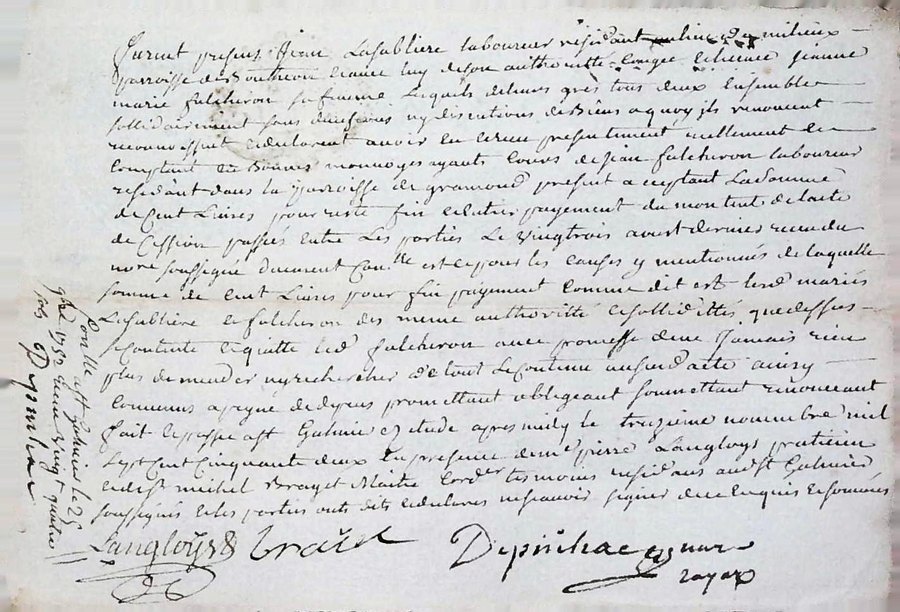 furent presens Jean Lasabliere laboureur residant milieux
parroisse de et avec luy de son authoritté congée et licence jeanne
marie fulcheron sa femme lesquels de leurs grés tous deux ensemble
sollidairement sans divisions ny discutions de biens a quoy ils renoncent
reconnoissent et declarent avoir eu et receu presentement reellement et
comptant en bonnes monnoyes ayants cours de jean fulcheron laboureur
residant dans la parroisse de gramond present acceptant la somme
de Cent Livres pour reste fin et entier payement du montent de lacte
de Cession passée entre Les parties Le vingtrois avost dernier receu du
nore soussigné duement conllé est ce pour les causes y mentionnés de laquelle
somme de Cent Livres pour fin payement comme dit est lesd mariés
Lasabliere et fulcheron des meme authoritté et sollidittés que dessus
contente et quitte led fulcheron avec promesse de ne Jamais rien
plus demender ny rechercher de tout le contenu aud acte ainsy
convenus a peyne de depens promettant obligeant soumettant renonceant
fait et passé a st Galmier etude apres midy le treizieme novembre mil
sept cent cinquante deux en presence de me pierre Langloys pratitien
et de sr michel Brayet Maitre cordr tesmoins residans aud st Galmier
soussignés et les parties onts dits et declarés ne sçavoir signer de ce enquis et sommés
Langloys Brayet Depinhac
rayax
Conllé a st galmier le 25
9bre 1752 receu vingt quatre
sols Depinhac